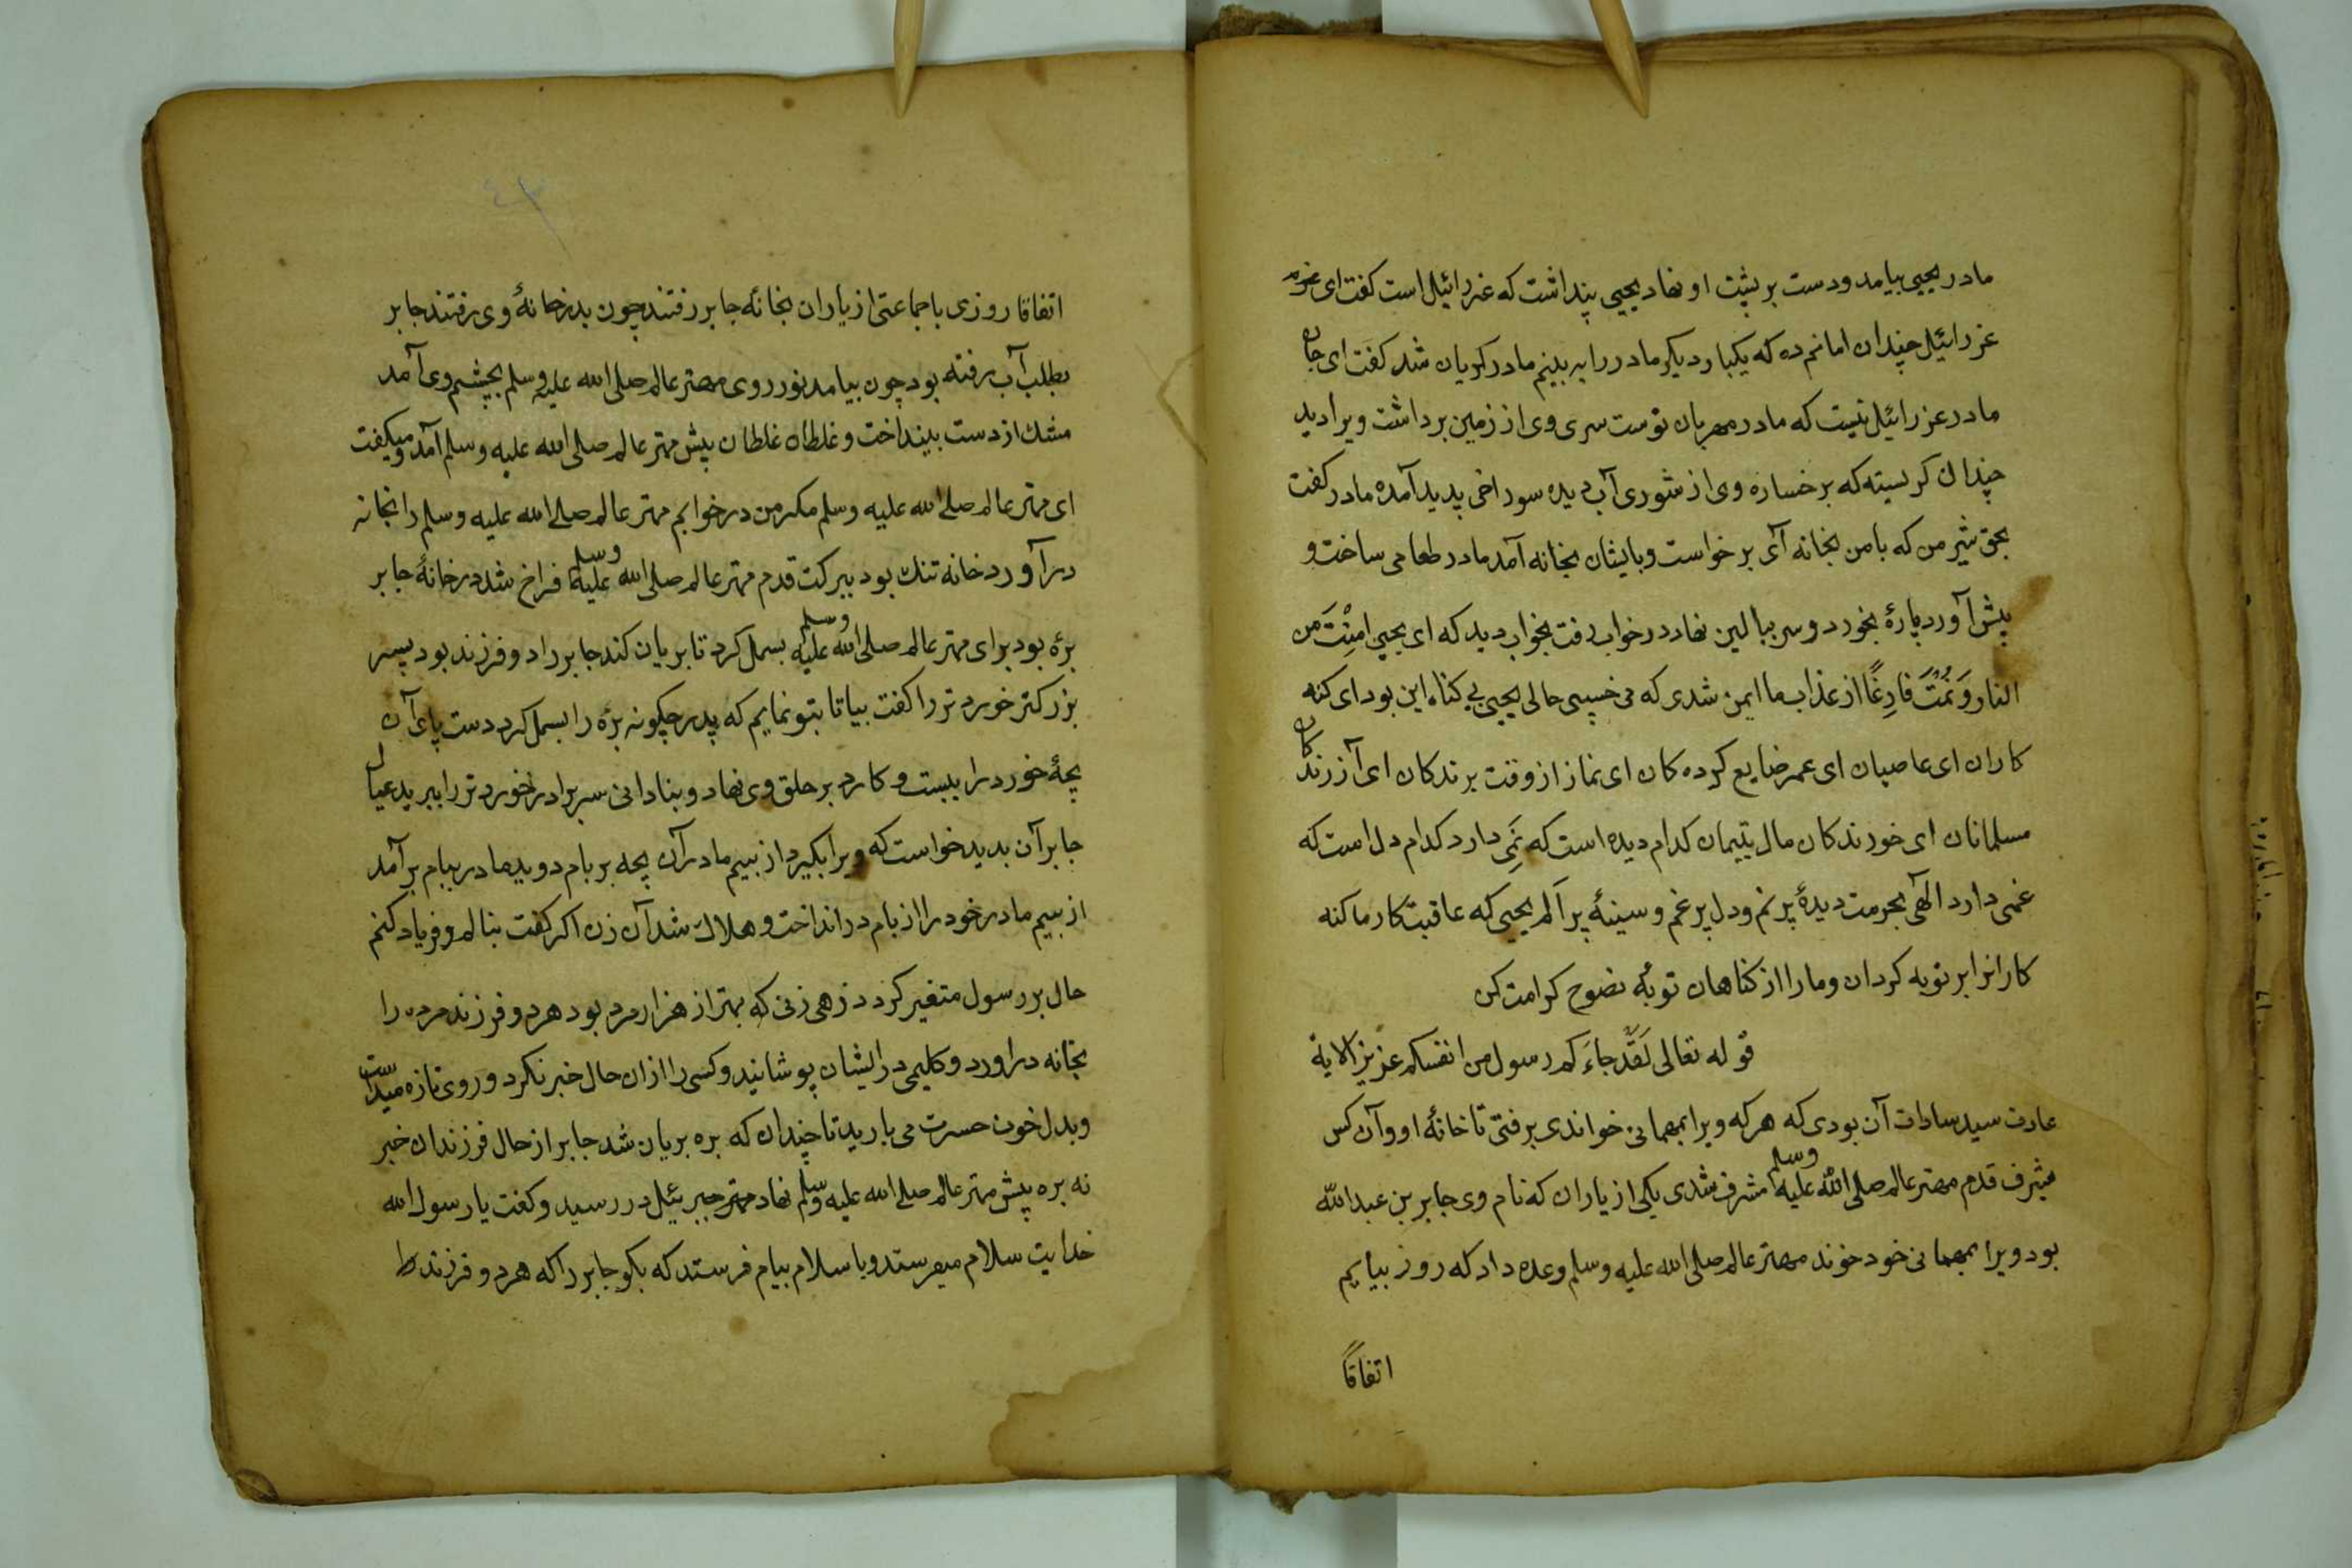 مادر یحیی بیامد ودست بر پشت او نهاد یحیی پنداشت که عزرائیل است کفت ای
عزرائیل چندان امانم ده که یکبار دیکر مادر را به بینم مادر کریان شد کفت ای جان
مادر عزرائیل نیست که مادر مهربان توست سری وی از زمین برداشت ویرا دید
چندان کریسته که بر خساره وی از شوری آب دیده سوراخی پدید آمده مادر کفت
بحق شیر من که بامن بخانه آی برخواست وبایشان بخانه آمد مادر طعامی ساخت و
پیش آورد پارهٔ بخورد وسر ببالین نهاد در خواب رفت بخواب دید که ای یحیی امِنْتَ من
النار وَنمْتَ فارِغًا از عذاب ما ایمن شدی که می خسپی حالی یحیی بی کناه این بود ای کنه
کاران ای عاصیان ای عمر ضایع کرده کان ای نماز از وقت برندکان ای آزرندکان
مسلمانان ای خورندکان مال یتیمان کدام دیده است که نَمی دارد کدام دل است که
غمی دارد الهی بحرمت دیدهٔ پر نم ودل پر غم وسینهٔ پر اَلم یحیی که عاقبت کار ما کنه
کارانرا بر توبه کردان ومارا از کناهان توبهٔ نصوح کرامت کن
قوله تعالی لَقَدْ جاءَکم رسول من انفسکم عزیز الایة
عادت سید سادات آن بودی که هرکه ویرا بمهمانی خواندی برفتی تا خانهٔ او وآن کس
بشرف قدم مهتر عالم صلی الله علیه وسلم مشرف شدی یکی از یاران که نام وی جابر بن عبدالله
بود ویرا بمهمانی خود خوند مهتر عالم صلی الله علیه وسلم وعده داد که روز بیایم
اتفاقًا
٤٣
اتفاقا روزی باجماعتی از یاران بخانهٔ جابر رفتند چون بدرخانهٔ وی رفتند جابر
بطلب آب رفته بود چون بیامد نور روی مهتر عالم صلی الله علیه وسلم بچشم وی آمد
مشك از دست بینداخت وغلطان غلطان پیش مهتر عالم صلی الله علیه وسلم آمد ومیکفت
ای مهتر عالم صلی الله علیه وسلم مکر من در خوابم مهتر عالم صلی الله علیه وسلم را بخانه
در آورد خانه تنك بود ببرکت قدم مهتر عالم صلی الله علیه وسلم فراخ شد در خانهٔ جابر
برّه بود برای مهتر عالم صلی الله علیه وسلم بسمل کرد تا بریان کند جابر را دو فرزند بود پسر
بزرکتر خوردتر را کفت بیا تا بتو نمایم که پدر چکونه برّه را بسمل کرد دست پای آن
بچهٔ خورد را ببست وکارد بر حلق وی نهاد وبنادانی سر برادر خوردتر را ببرید عیال
جابر آن بدید خواست که ویرا بکیرد از بیم مادر آن بچه بر بام دوید مادر ببام بر آمد
از بیم مادر خود را از بام در انداخت وهلاك شد آن زن اکر کفت بنالم وفریاد کنم
حال بر رسول متغیر کردد زهی زنی که بهتر از هزار مرد بود هردو فرزند مرده را
بخانه دراورد وکلیمی در ایشان پوشانید وکسی را ازان حال خبر نکرد وروی تازه میداشت
وبدل خون حسرت می بارید تا چندان که بره بریان شد جابر از حال فرزندان خبر
نه بره پیش مهتر عالم صلی الله علیه وسلم نهاد مهتر جبرئیل در رسید وکفت یا رسول الله
خدایت سلام میفرستد وبا سلام پیام فرستد که بکو جابر را که هردو فرزند